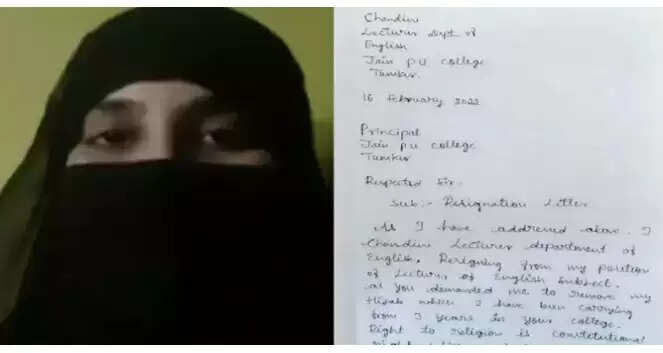 Chandini
Lecturer Dept of
English
Jain PU college
Tumkur.
16 February 2022
Principal
Jain PU college
Tumkur
Respected Sir.
Sub:- Resignation Letter
As I have addressed above. I
Chandini Lecturer department of
English, Resigning from my position
of Lecturer of English Subject.
as you demanded me to remove my
Hijab which I have been carrying
from 3 years in your college.
Right to religion is constitutional